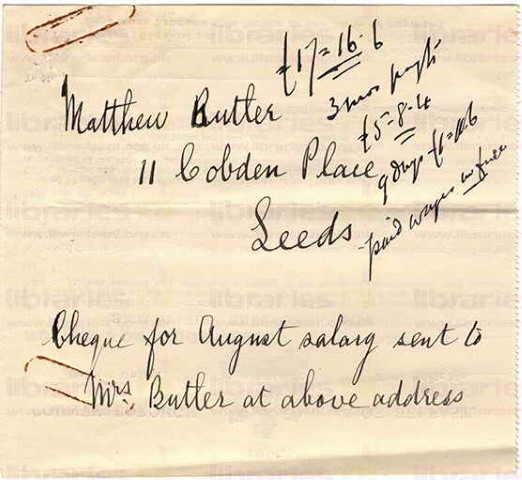 £17=16.6
3 mos
£5=8.4
9 days
paid wages in
Matthew Butler
11 Cobden Place
Leeds
Cheque for August salary sent to
Mrs. Butler at above address